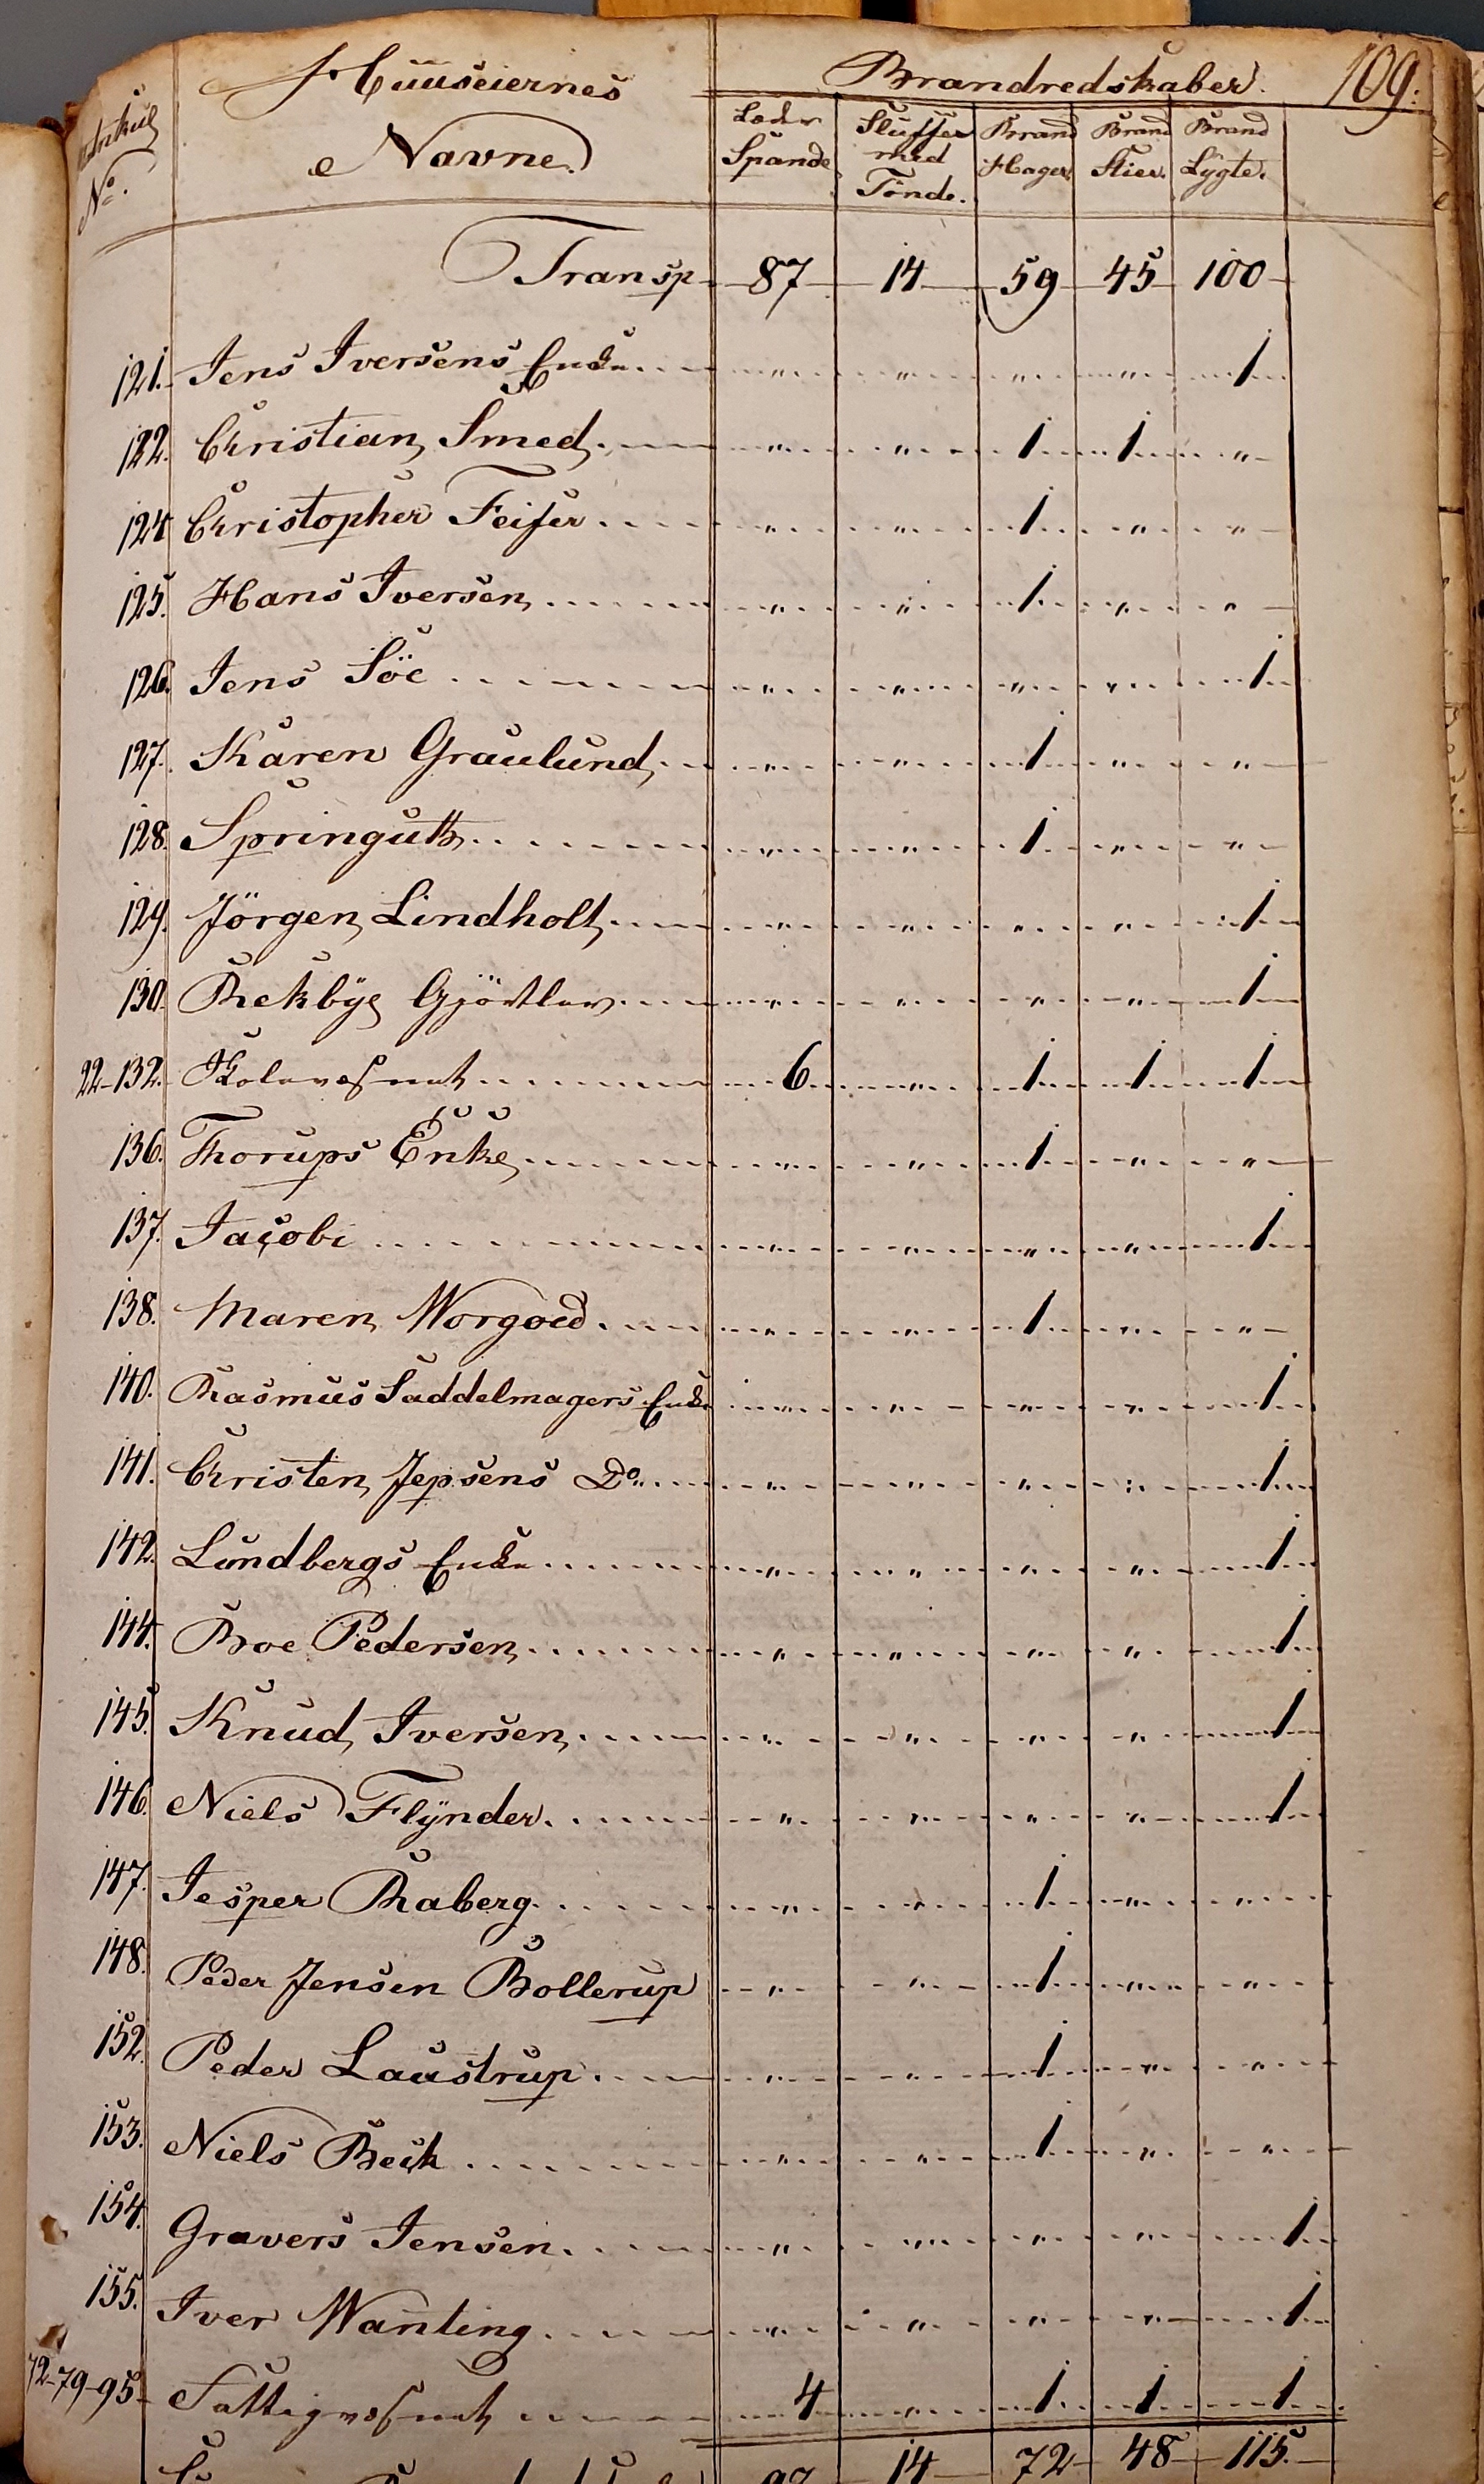 109.
Huuseiernes Navne
Brandredskaber.
Matrikul No.
Læder Spande
Sluffer med Tönde.
Brand Hager
Brand Stier.
Brand Lÿgte.
Transp 87 14 59 45 100
121. Jens Iversens Enke " " " " 1
122. Christian Smed. " " 1 1 "
124 Christopher Feifer " " 1 " "
125. Hans Iversen " " 1 " "
126. Jens Söe " " " " 1
127. Karen Graulund " " 1 " "
128. Springuth " " 1 " "
129. Jörgen Lindholt " " " " 1
130. Rekbÿe Gjörtler " " " " 1
22-132. Skolevæsnet 6 " 1 1 1
136. Thorups Enke " " 1 " "
137. Jacobi " " " " 1
138. Maren Worgod " " 1 " "
140. Rasmus Saddelmagers Enke " " " " 1
141. Christen Jepsens Do " " " " 1
142. Lundbergs Enke " " " " 1
144. Boe Pedersen " " " " 1
145. Knud Iversen " " " " 1
146. Niels Flÿnder " " " " 1
147. Jesper Raberg " " 1 " "
148. Peder Jensen Bollerup " " 1 " "
152. Peder Laustrup " " 1 " "
153. Niels Beck " " 1 " "
154. Gravers Jensen " " " " 1
155. Iver Wanting " " " " 1
72-79-95 Fattigvæsnet 4 " 1 1 1
97 14 72 48 115